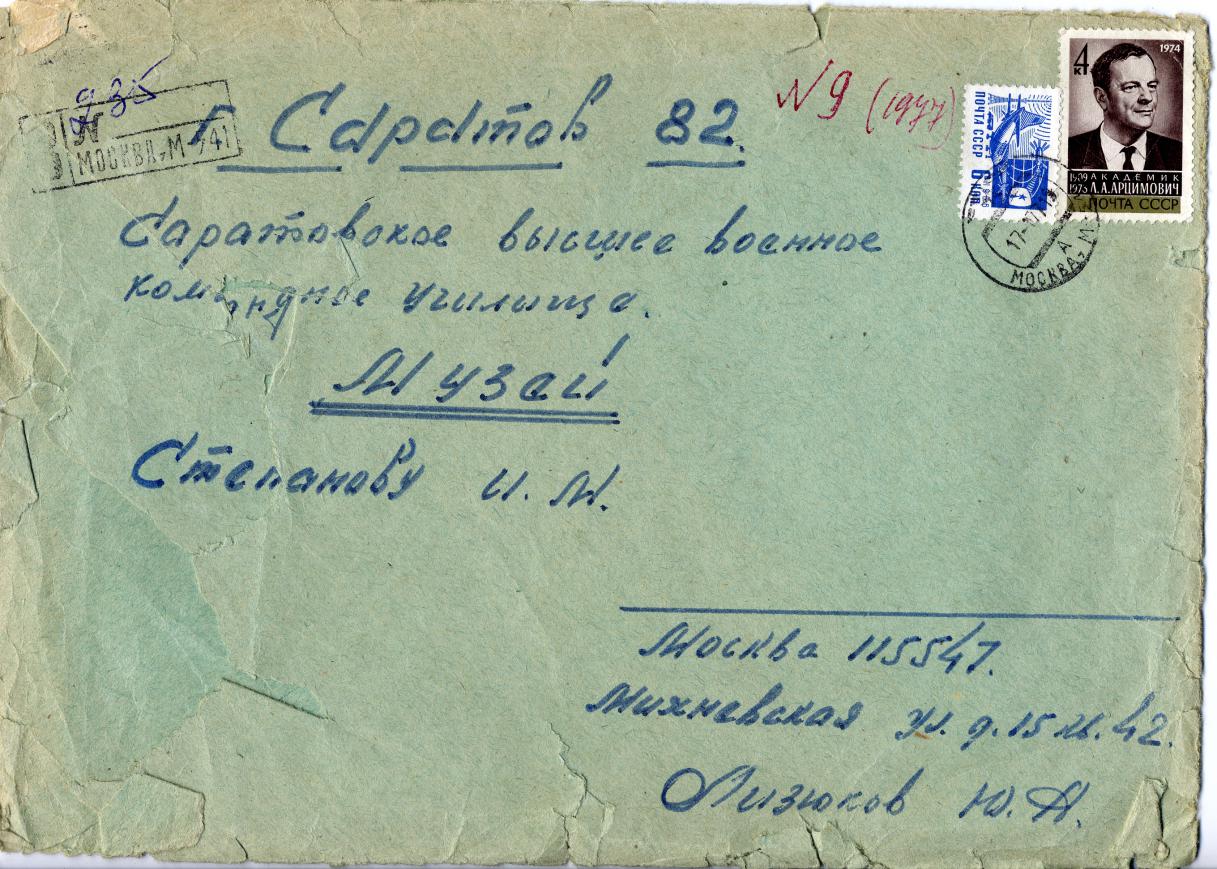 935
Р N
МОСКВА, М-741
г Саратов 82.
N9 (1977)
ПОЧТА СССР 6 КОП.
4к 1974
1909 АКАДЕМИК
1973 Л.А.АРЦИМОВИЧ
ПОЧТА СССР
МОСКВА,
Саратовское высшее военное
командное училища.
Музей
Степанову И. М.
Москва 115547.
Михневская ул. д. 15 к. 42.
Лизюков Ю. А.